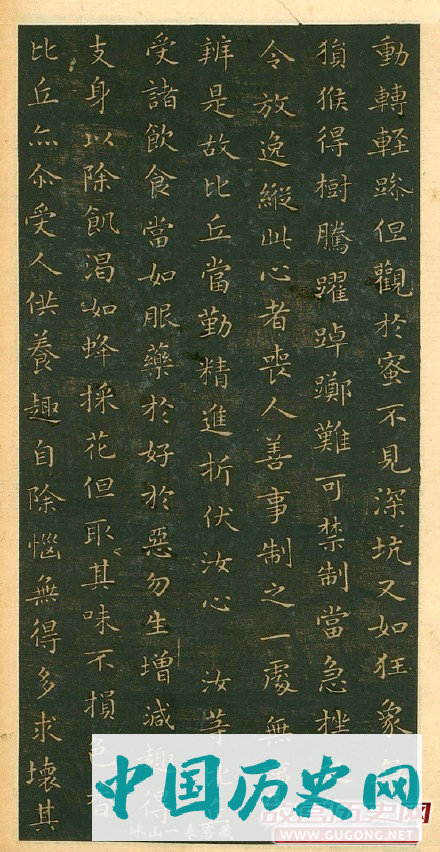 動轉輕躁但觀於蜜不見深坑又如狂象
猨猴得樹騰躍踔躑難可禁制當急挫
令放逸縱此心者喪人善事制之一處無
辨是故比丘當勤精進折伏汝心 汝等
受諸飲食當如服藥於好於惡勿生增減趣得
支身以除飢渴如蜂採花但取其味不損色
比丘亦尒受人供養趣自除惱無得多求壞其
中国历史网
WWW.GUGONG.NET